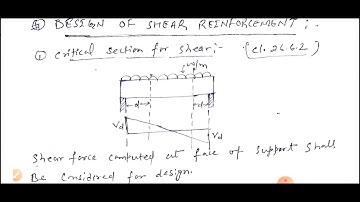 ④ DESIGN OF SHEAR REINFORCEMENT ;-
① Critical section for shear;- (cl. 26.6.2)
w/m
d d
Vd
Vd
Shear force computed at face of support shall
Be Considered for design.